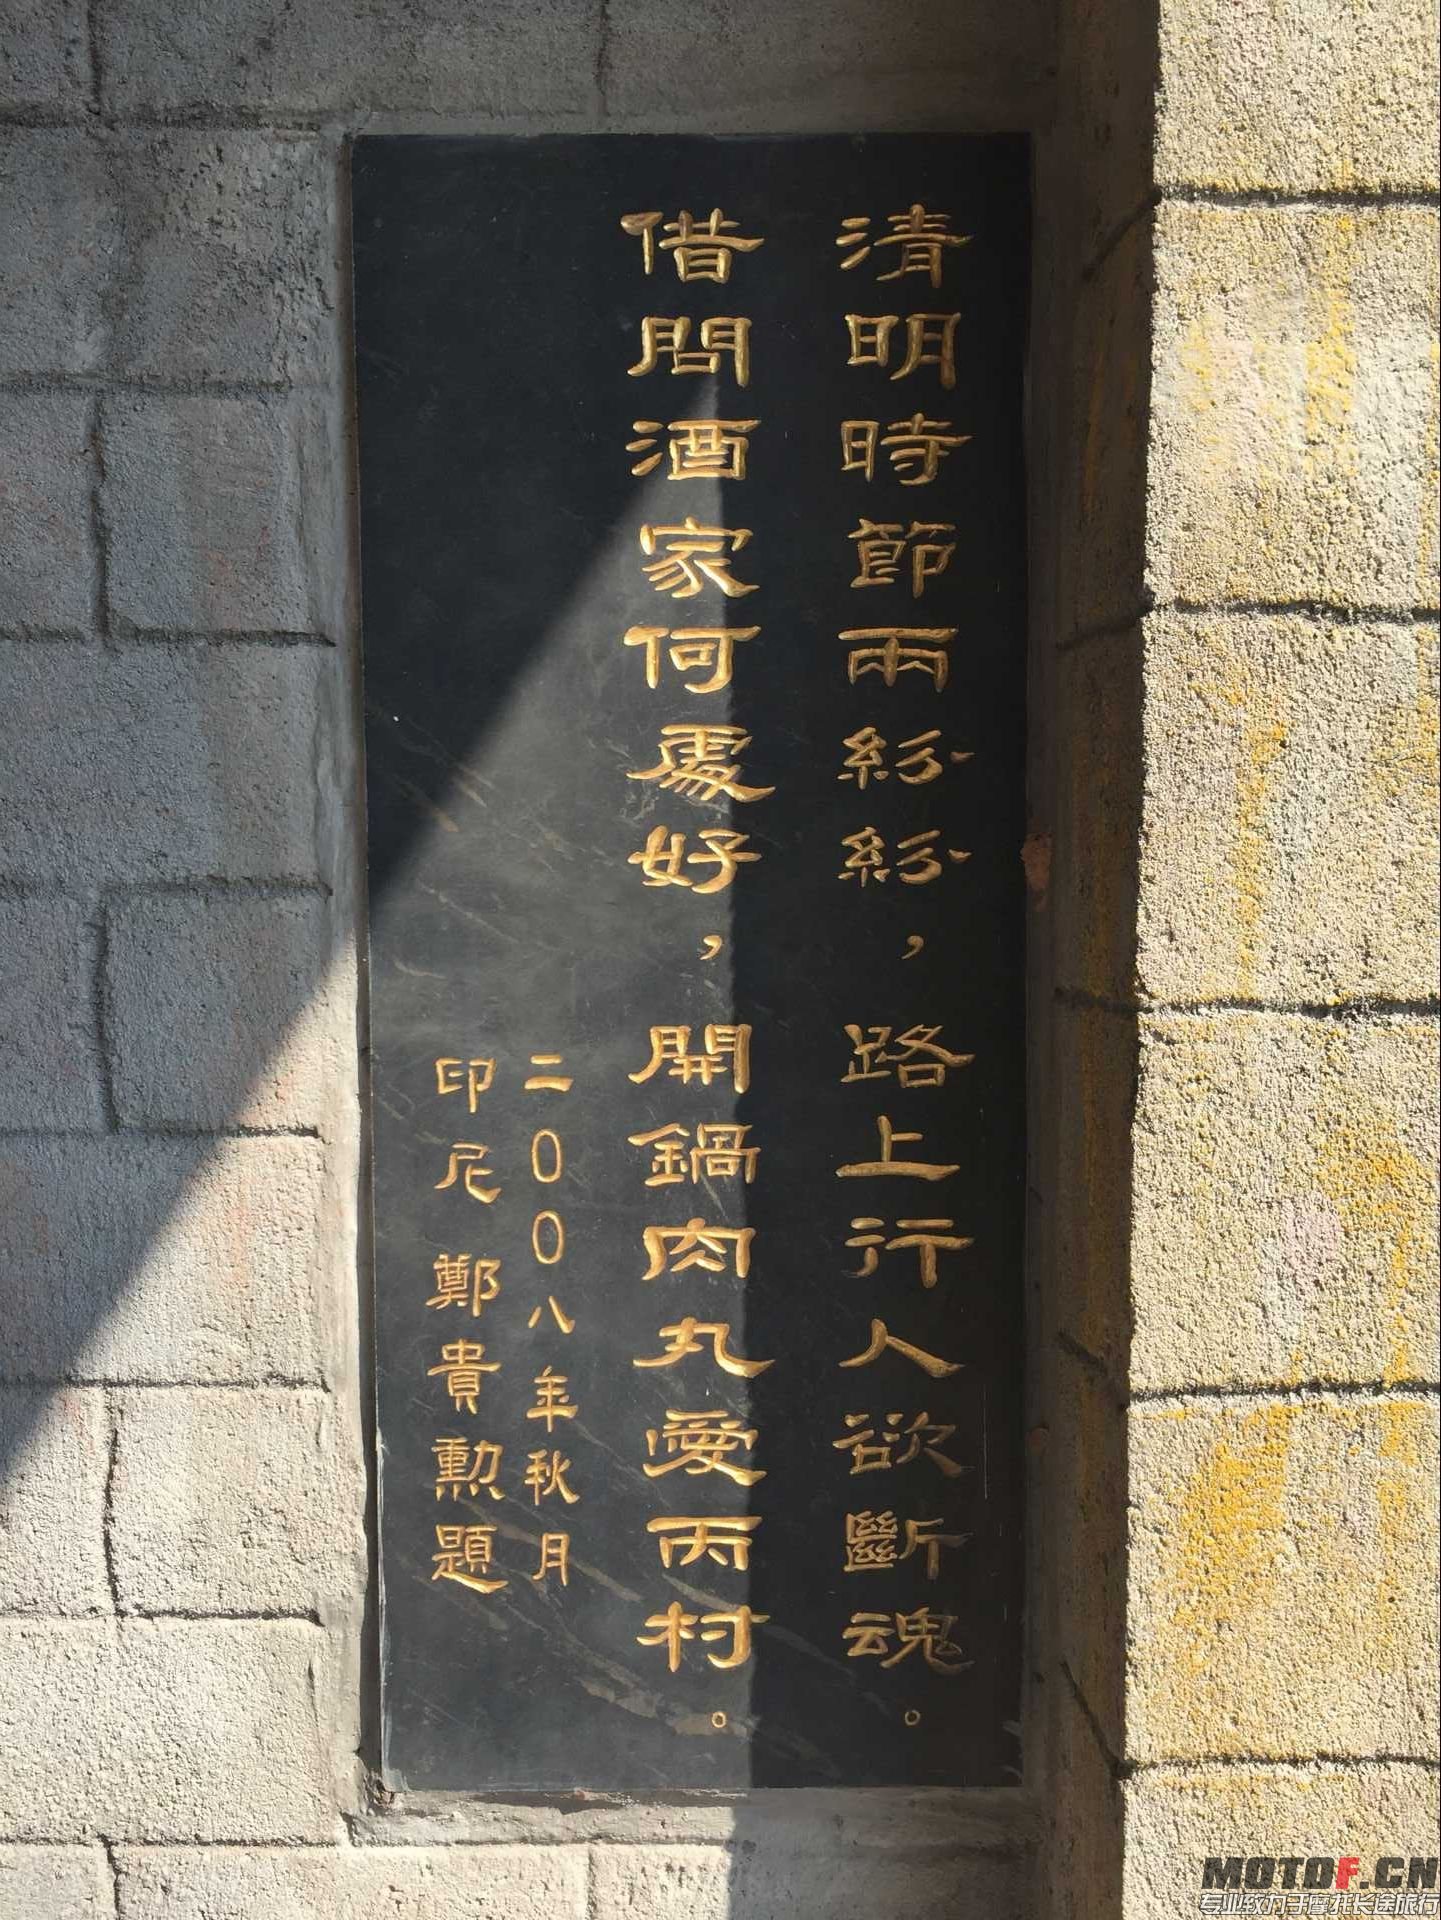 清明時節雨紛紛，路上行人欲斷魂。
借問酒家何處好，開鍋肉丸愛丙村。
二〇〇八年秋月
印尼鄭貴勲題
MOTOF.CN
专业致力于摩托长途旅行